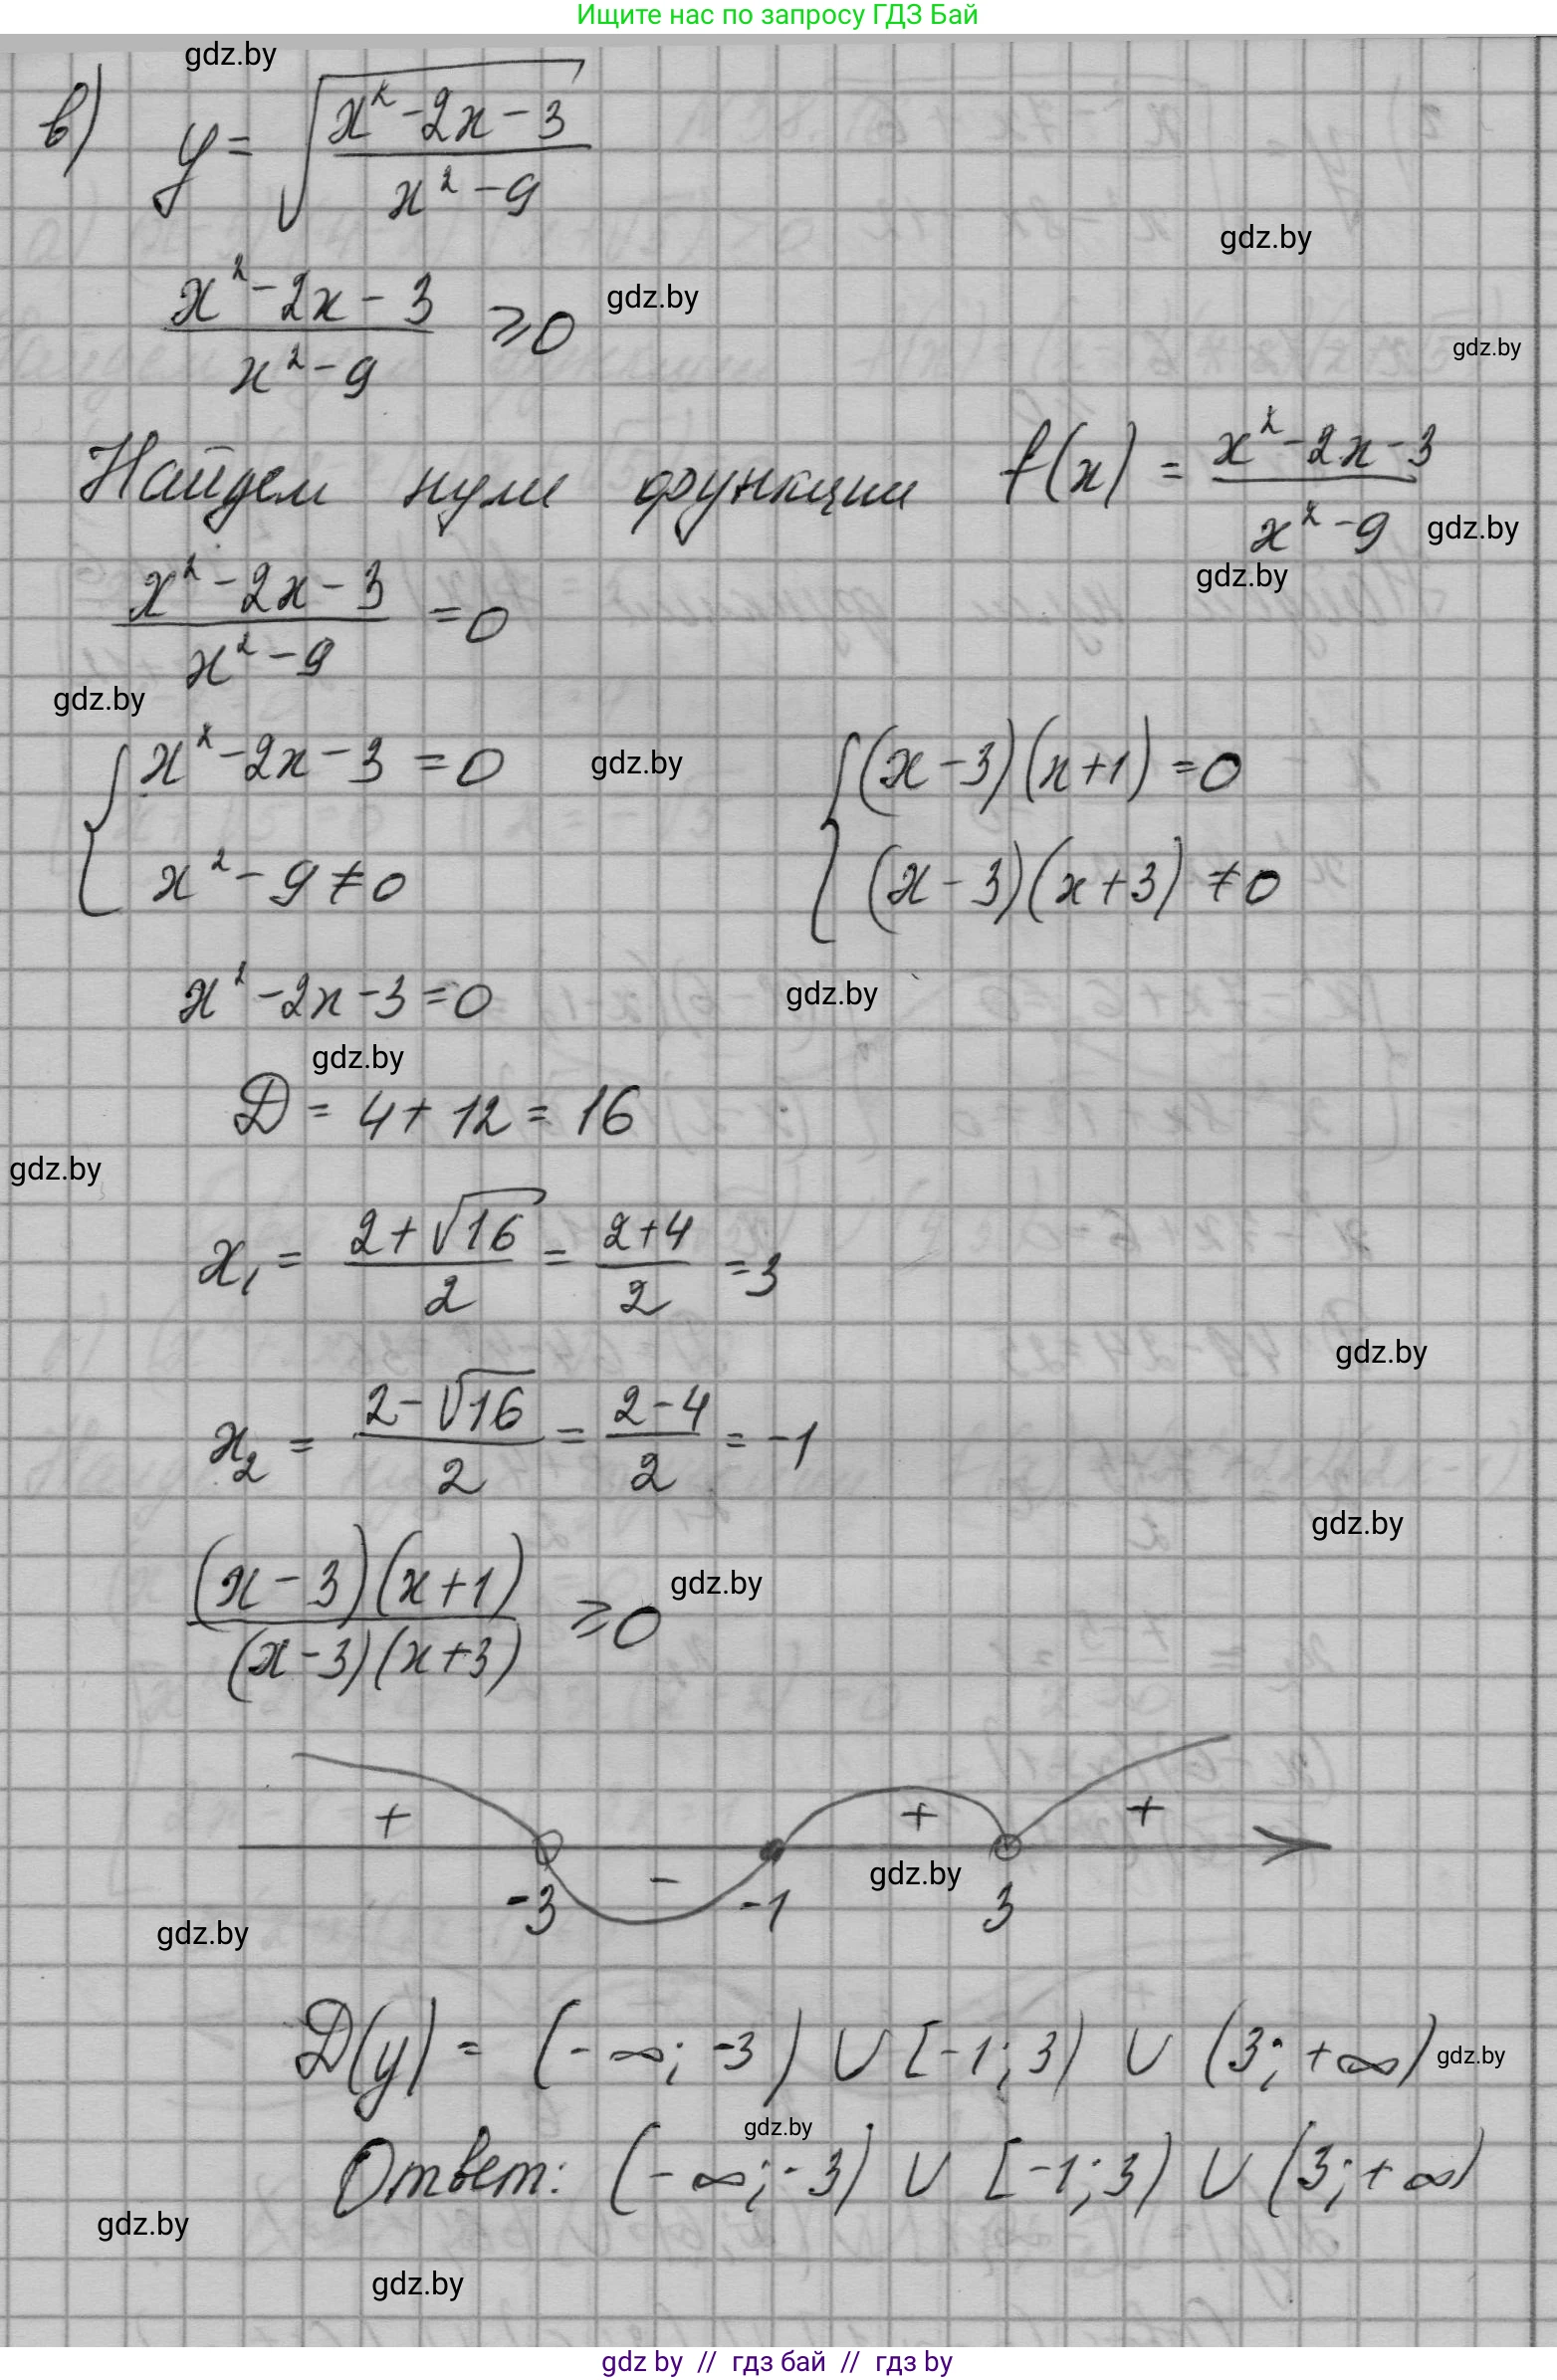 Ищите нас по запросу ГДЗ Бай
gdz.by
в) y = √((x² - 2x - 3)/(x² - 9))
gdz.by
(x² - 2x - 3)/(x² - 9) ≥ 0
gdz.by
gdz.by
Найдем нули функции f(x) = (x² - 2x - 3)/(x² - 9)
gdz.by
gdz.by
(x² - 2x - 3)/(x² - 9) = 0
gdz.by
{ x² - 2x - 3 = 0
x² - 9 ≠ 0
gdz.by
{ (x - 3)(x + 1) = 0
(x - 3)(x + 3) ≠ 0
x² - 2x - 3 = 0
gdz.by
gdz.by
D = 4 + 12 = 16
gdz.by
x₁ = (2 + √16)/2 = (2 + 4)/2 = 3
gdz.by
x₂ = (2 - √16)/2 = (2 - 4)/2 = -1
gdz.by
(x - 3)(x + 1)/(x - 3)(x + 3) ≥ 0
gdz.by
+ - + +
gdz.by
-3 -1 3
gdz.by
D(y) = (-∞; -3) ∪ [-1; 3) ∪ (3; +∞)
gdz.by
gdz.by
Ответ: (-∞; -3) ∪ [-1; 3) ∪ (3; +∞)
gdz.by
gdz.by
gdz by // гдз бай // гдз by